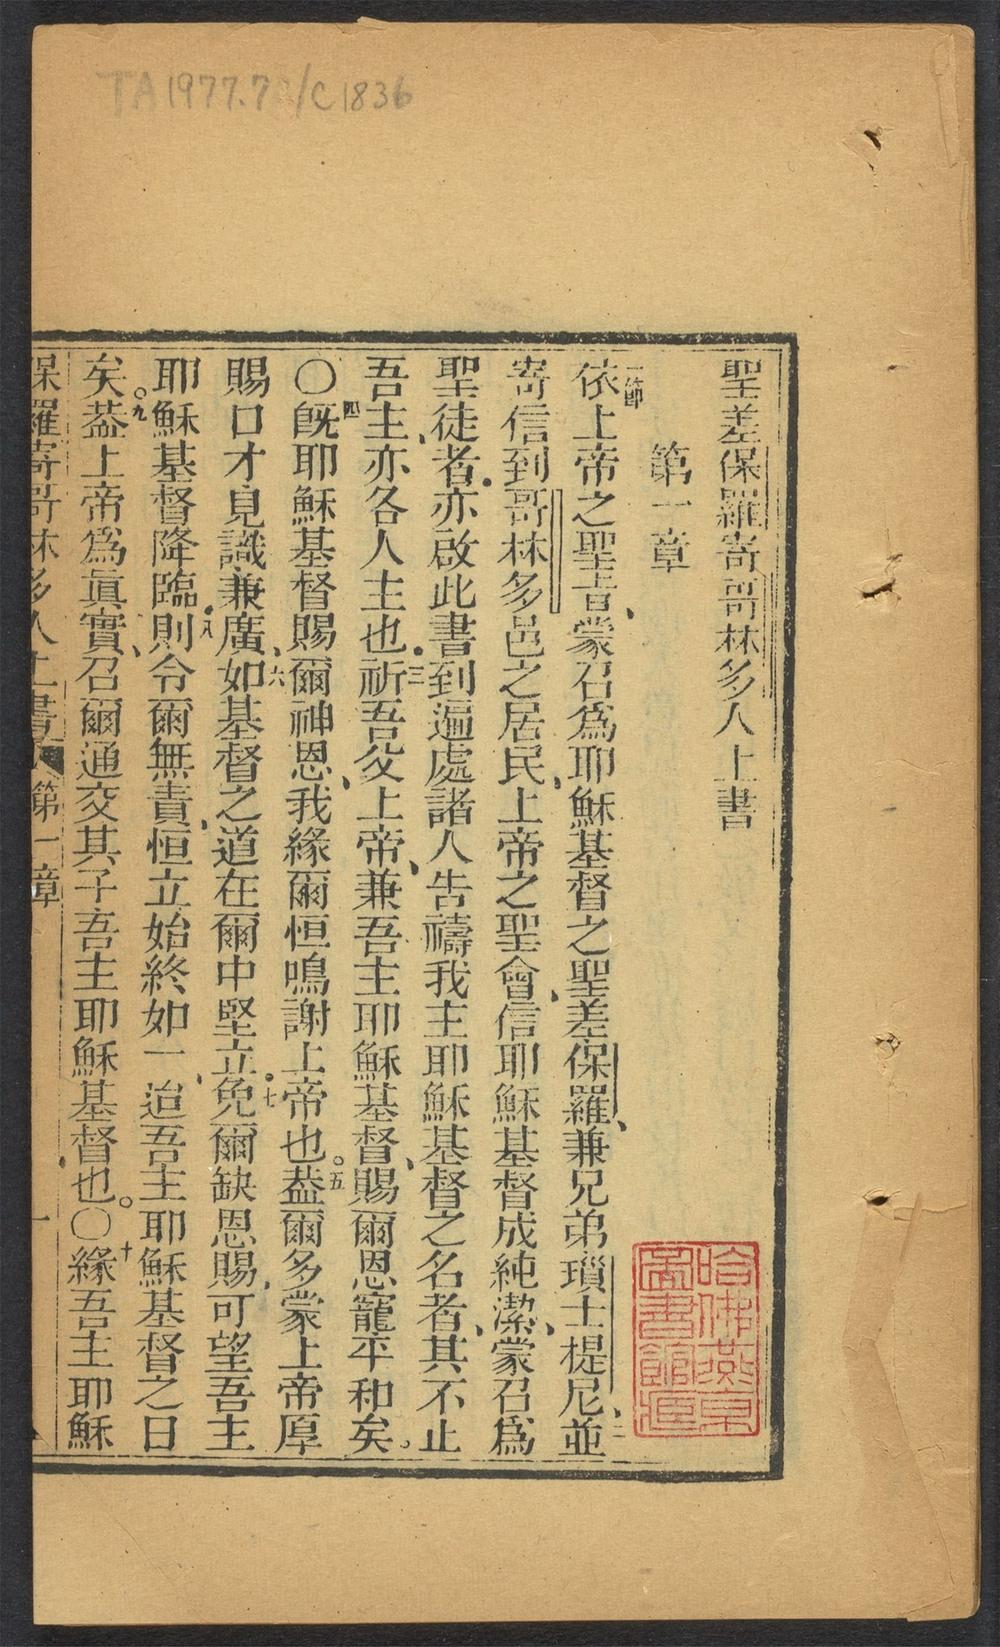 TA 1977.7 /C1836
聖差保羅寄哥林多人上書
第一章
一節
依上帝之聖旨、蒙召爲耶穌基督之聖差保羅、兼兄弟瑣士提尼、並
二
寄信到哥林多邑之居民、上帝之聖會、信耶穌基督成純潔、蒙召爲
聖徒者、亦啟此書到遍處諸人告禱我主耶穌基督之名者、其不止
吾主、亦各人主也。三祈吾父上帝、兼吾主耶穌基督、賜爾恩寵平和矣。
〇四旣耶穌基督賜爾神恩、我緣爾恒鳴謝上帝也。五葢爾多蒙上帝厚
賜口才見識兼廣、六如基督之道在爾中堅立。七免爾缺恩賜、可望吾主
耶穌基督降臨。八則令爾無責、恒立始終如一、迨吾主耶穌基督之日
矣。九葢上帝爲眞實、召爾通交其子吾主耶穌基督也。〇十緣吾主耶穌
保羅寄哥林多人上書 第一章 一
哈佛燕京
圖書館